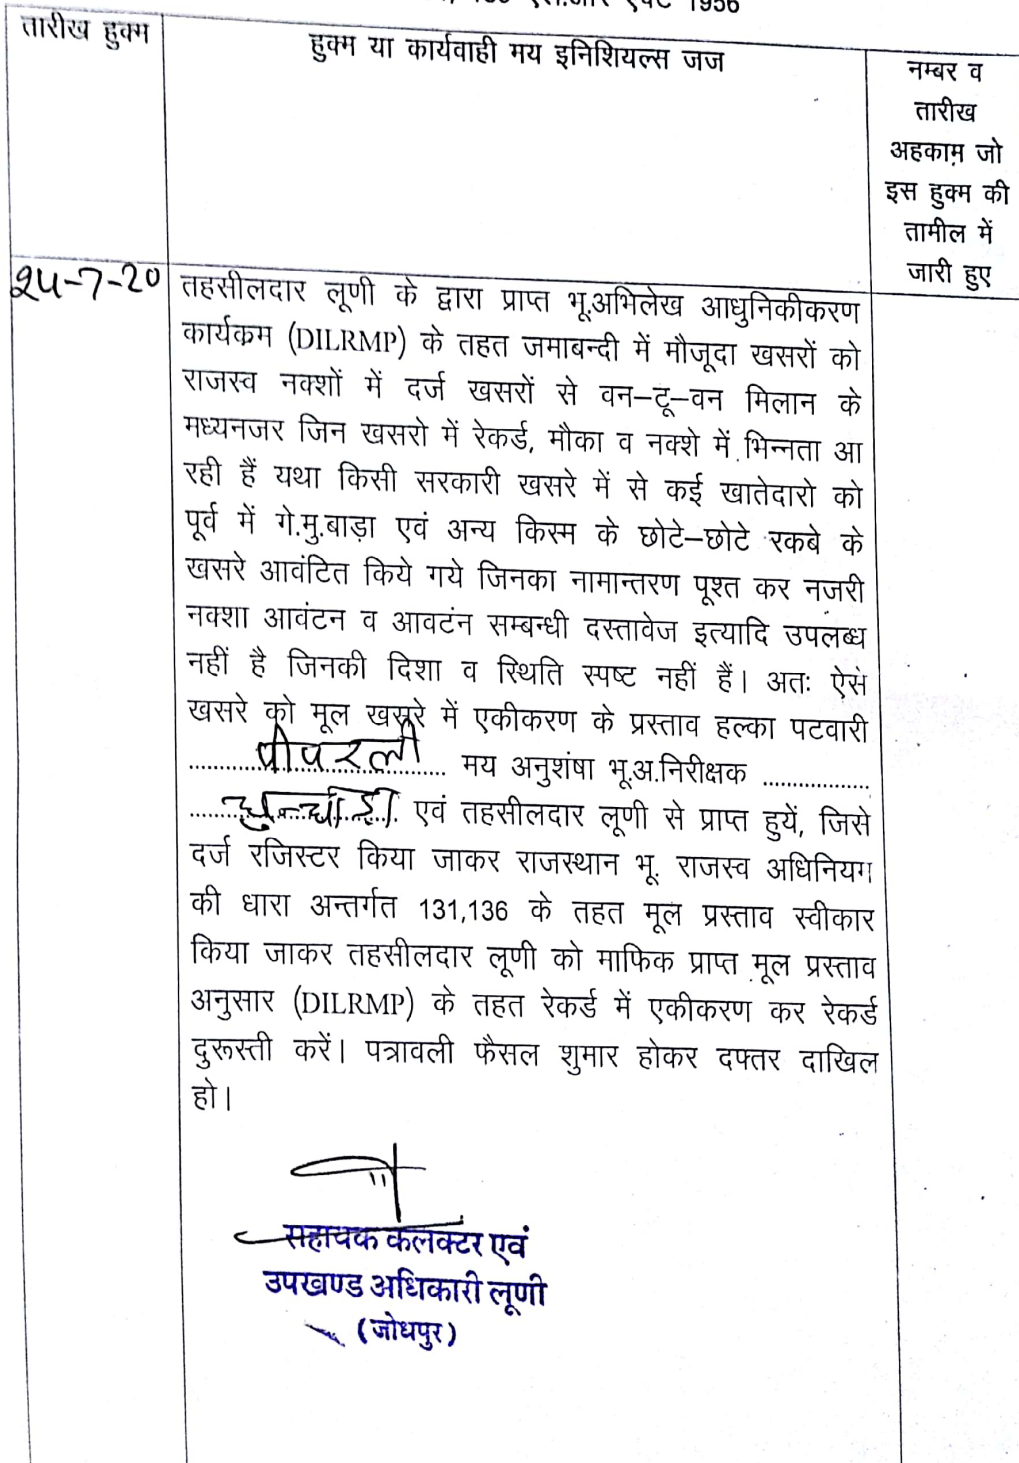 एल.आर एक्ट 1956
तारीख हुक्म
हुक्म या कार्यवाही मय इनिशियल्स जज
नम्बर व
तारीख
अहकाम जो
इस हुक्म की
तामील में
जारी हुए
24-7-20
तहसीलदार लूणी के द्वारा प्राप्त भू.अभिलेख आधुनिकीकरण
कार्यकम (DILRMP) के तहत जमाबन्दी में मौजूदा खसरों को
राजस्व नक्शों में दर्ज खसरों से वन–टू–वन मिलान के
मध्यनजर जिन खसरो में रेकर्ड, मौका व नक्शे में भिन्नता आ
रही हैं यथा किसी सरकारी खसरे में से कई खातेदारो को
पूर्व में गे.मु.बाड़ा एवं अन्य किस्म के छोटे–छोटे रकबे के
खसरे आवंटित किये गये जिनका नामान्तरण पूश्त कर नजरी
नक्शा आवंटन व आवटंन सम्बन्धी दस्तावेज इत्यादि उपलब्ध
नहीं है जिनकी दिशा व स्थिति स्पष्ट नहीं हैं। अतः ऐसे
खसरे को मूल खसरे में एकीकरण के प्रस्ताव हल्का पटवारी
पीपरली मय अनुशंषा भू.अ.निरीक्षक ..................
एवं तहसीलदार लूणी से प्राप्त हुयें, जिसे
दर्ज रजिस्टर किया जाकर राजस्थान भू. राजस्व अधिनियम
की धारा अन्तर्गत 131,136 के तहत मूल प्रस्ताव स्वीकार
किया जाकर तहसीलदार लूणी को माफिक प्राप्त मूल प्रस्ताव
अनुसार (DILRMP) के तहत रेकर्ड में एकीकरण कर रेकर्ड
दुरूस्ती करें। पत्रावली फैसल शुमार होकर दफ्तर दाखिल
हो।
सहायक कलक्टर एवं
उपखण्ड अधिकारी लूणी
(जोधपुर)